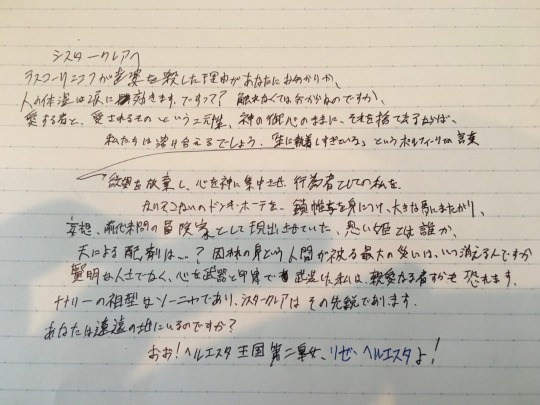 シスタークレアへ
ラスコーリニコフが老婆を殺した理由があなたにおわかりか、
人の体温は涙に効きます、ですって？ 触れなくては分からないのですか、
愛する者と、愛されるもの という二元性、神の御心のままに、それを捨て去るならば、
私たちは溶け合えるでしょう、「生に執着しすぎている」というポルフィーリーの言葉
欲望を放棄し、心を神に集中させ、行為者としての私を、
ドン・キホーテを、鎖帷子を身につけ、大きな馬にまたがり、
妄想、前代未聞の冒険家として現出させていた、思い姫とは誰か、
天による配剤は…？ 囚われの身という人間が被る最大の災いは、いつ消えるんですか
賢明な人士でなく、心を武器と甲冑で武装した私は、親愛なる者すらも恐れます、
ナナリーの祖型はソーニャであり、シスタークレアは その先鋭であります、
あなたは遼遠の地にいるのですか？
おお！ヘルエスタ王国 第二皇女、リゼ・ヘルエスタよ！